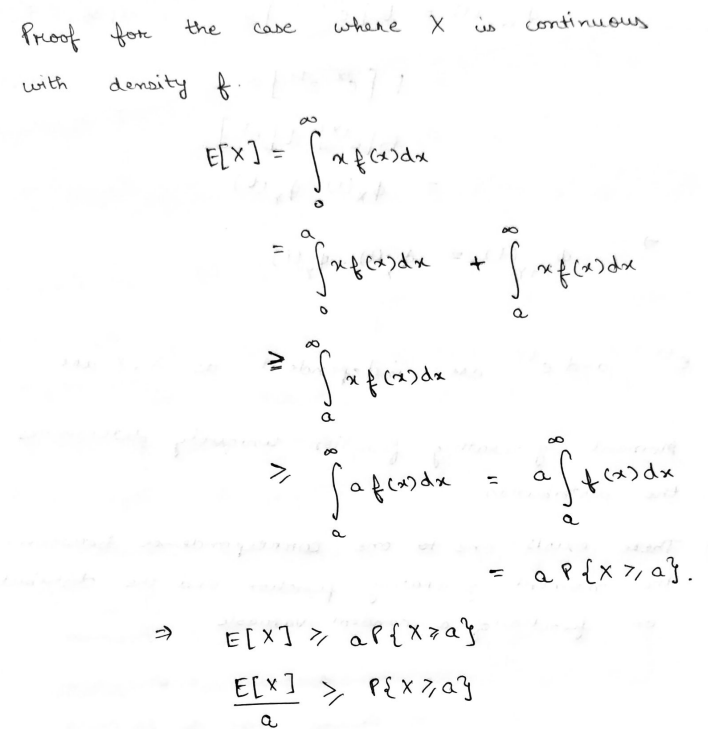 Proof for the case where X is continuous
with density f.
E[X] = ∫_0^∞ x f(x)dx
= ∫_0^a x f(x)dx + ∫_a^∞ x f(x)dx
≥ ∫_a^∞ x f(x)dx
≥ ∫_a^∞ a f(x)dx = a ∫_a^∞ f(x)dx
= a P{X ≥ a}.
⇒ E[X] ≥ aP{X ≥ a}
E[X]/a ≥ P{X ≥ a}